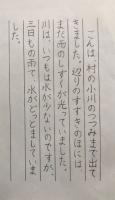 ごんは、村の小川のつつみまで出て
きました。辺りのすすきのほには、
まだ雨のしずくが光っていました。
川は、いつもは水が少ないのですが、
三日もの雨で、水がどっとましていま
した。